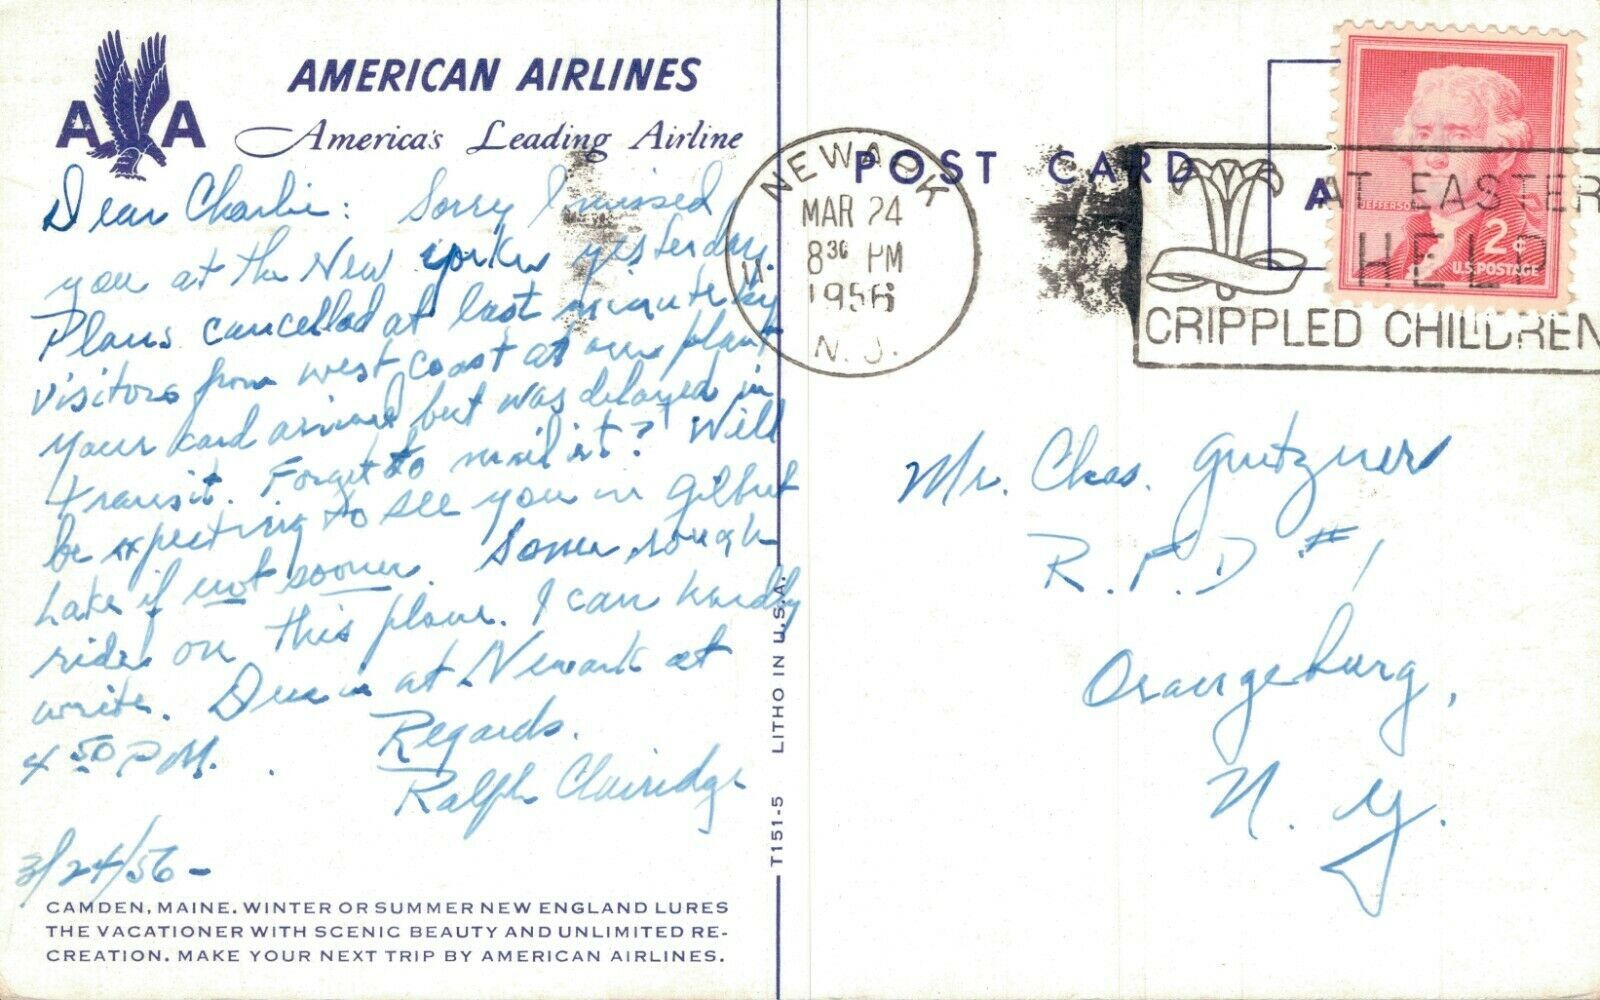 AMERICAN AIRLINES
A A
America's Leading Airline
Dear Charlie: Sorry I missed
you at the New Yorker yesterday.
Plans cancelled at last minute by
visitors from west coast at our plant
Your card arrived but was delayed in
transit. Forget to mail it? Will
be expecting to see you in Gilbert
Lake if not sooner. Some rough
rides on this plane. I can hardly
write. Due in at Newark at
4 50 P.M.
Regards.
Ralph Clairidge
3/24/56-
CAMDEN, MAINE. WINTER OR SUMMER NEW ENGLAND LURES
THE VACATIONER WITH SCENIC BEAUTY AND UNLIMITED RE-
CREATION. MAKE YOUR NEXT TRIP BY AMERICAN AIRLINES.
T151-5 LITHO IN U.S.A.
POST CARD
NEWARK
MAR 24
8 30 PM
1956
N. J.
AT EASTER
HELP
CRIPPLED CHILDREN
JEFFERSON
2¢
U.S. POSTAGE
Mr. Chas. Gutzner
R.F.D #1
Orangeburg,
N. Y.